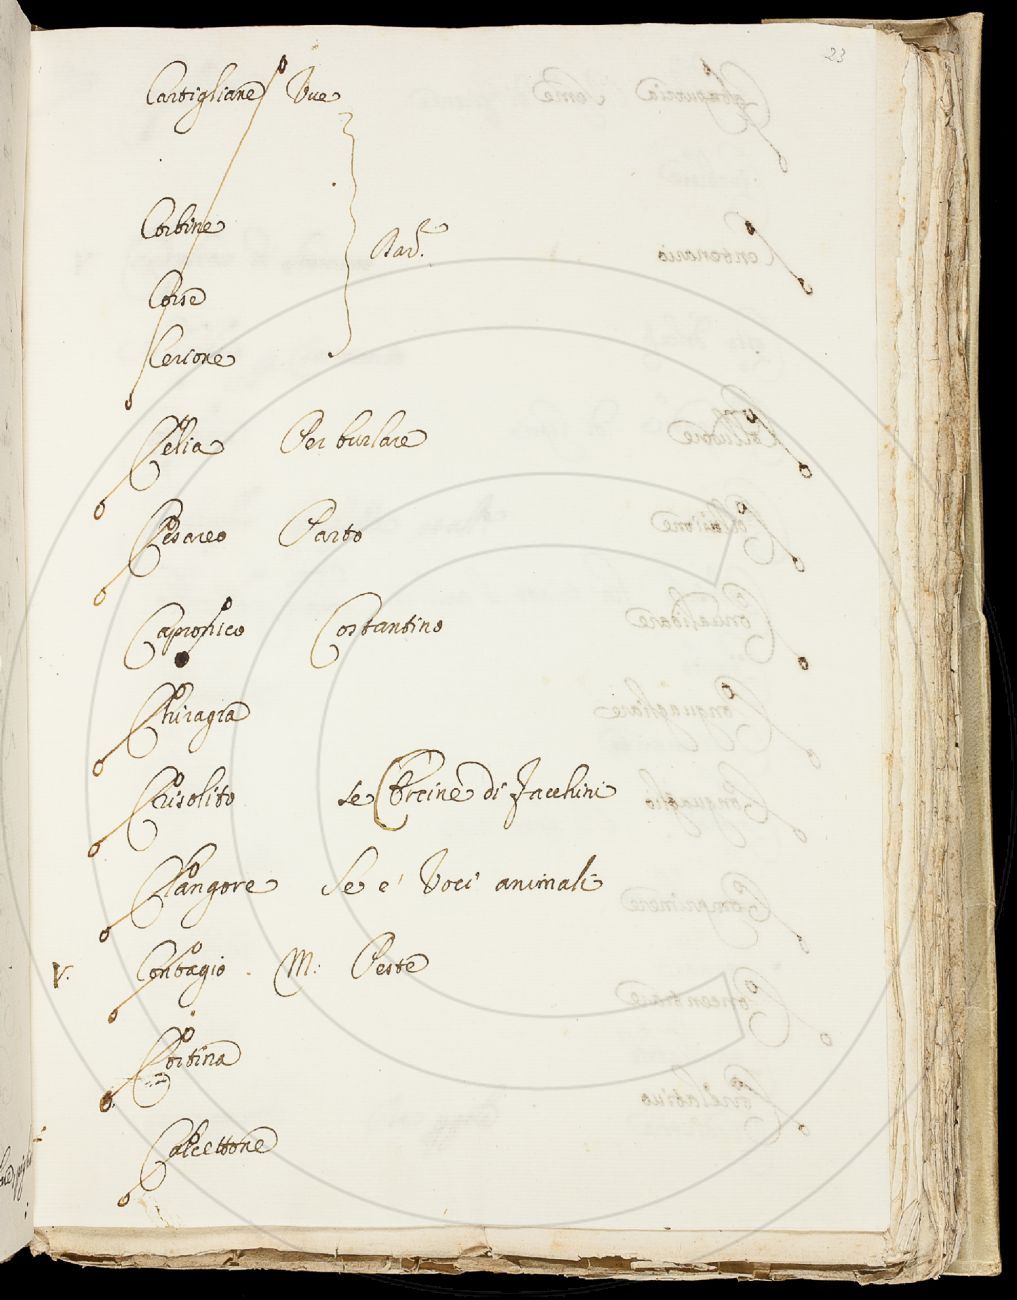 23
Cartigliane Uve
Corbine
Corse
Bar.
Cercone
Celia Per burlare
Cesareo Parto
Capronico Costantino
Chiragra
Crisolito se di Jacchini
Clangore Se e' Voci animali
V. Contagio. M: Peste
Cortina
Calcettone